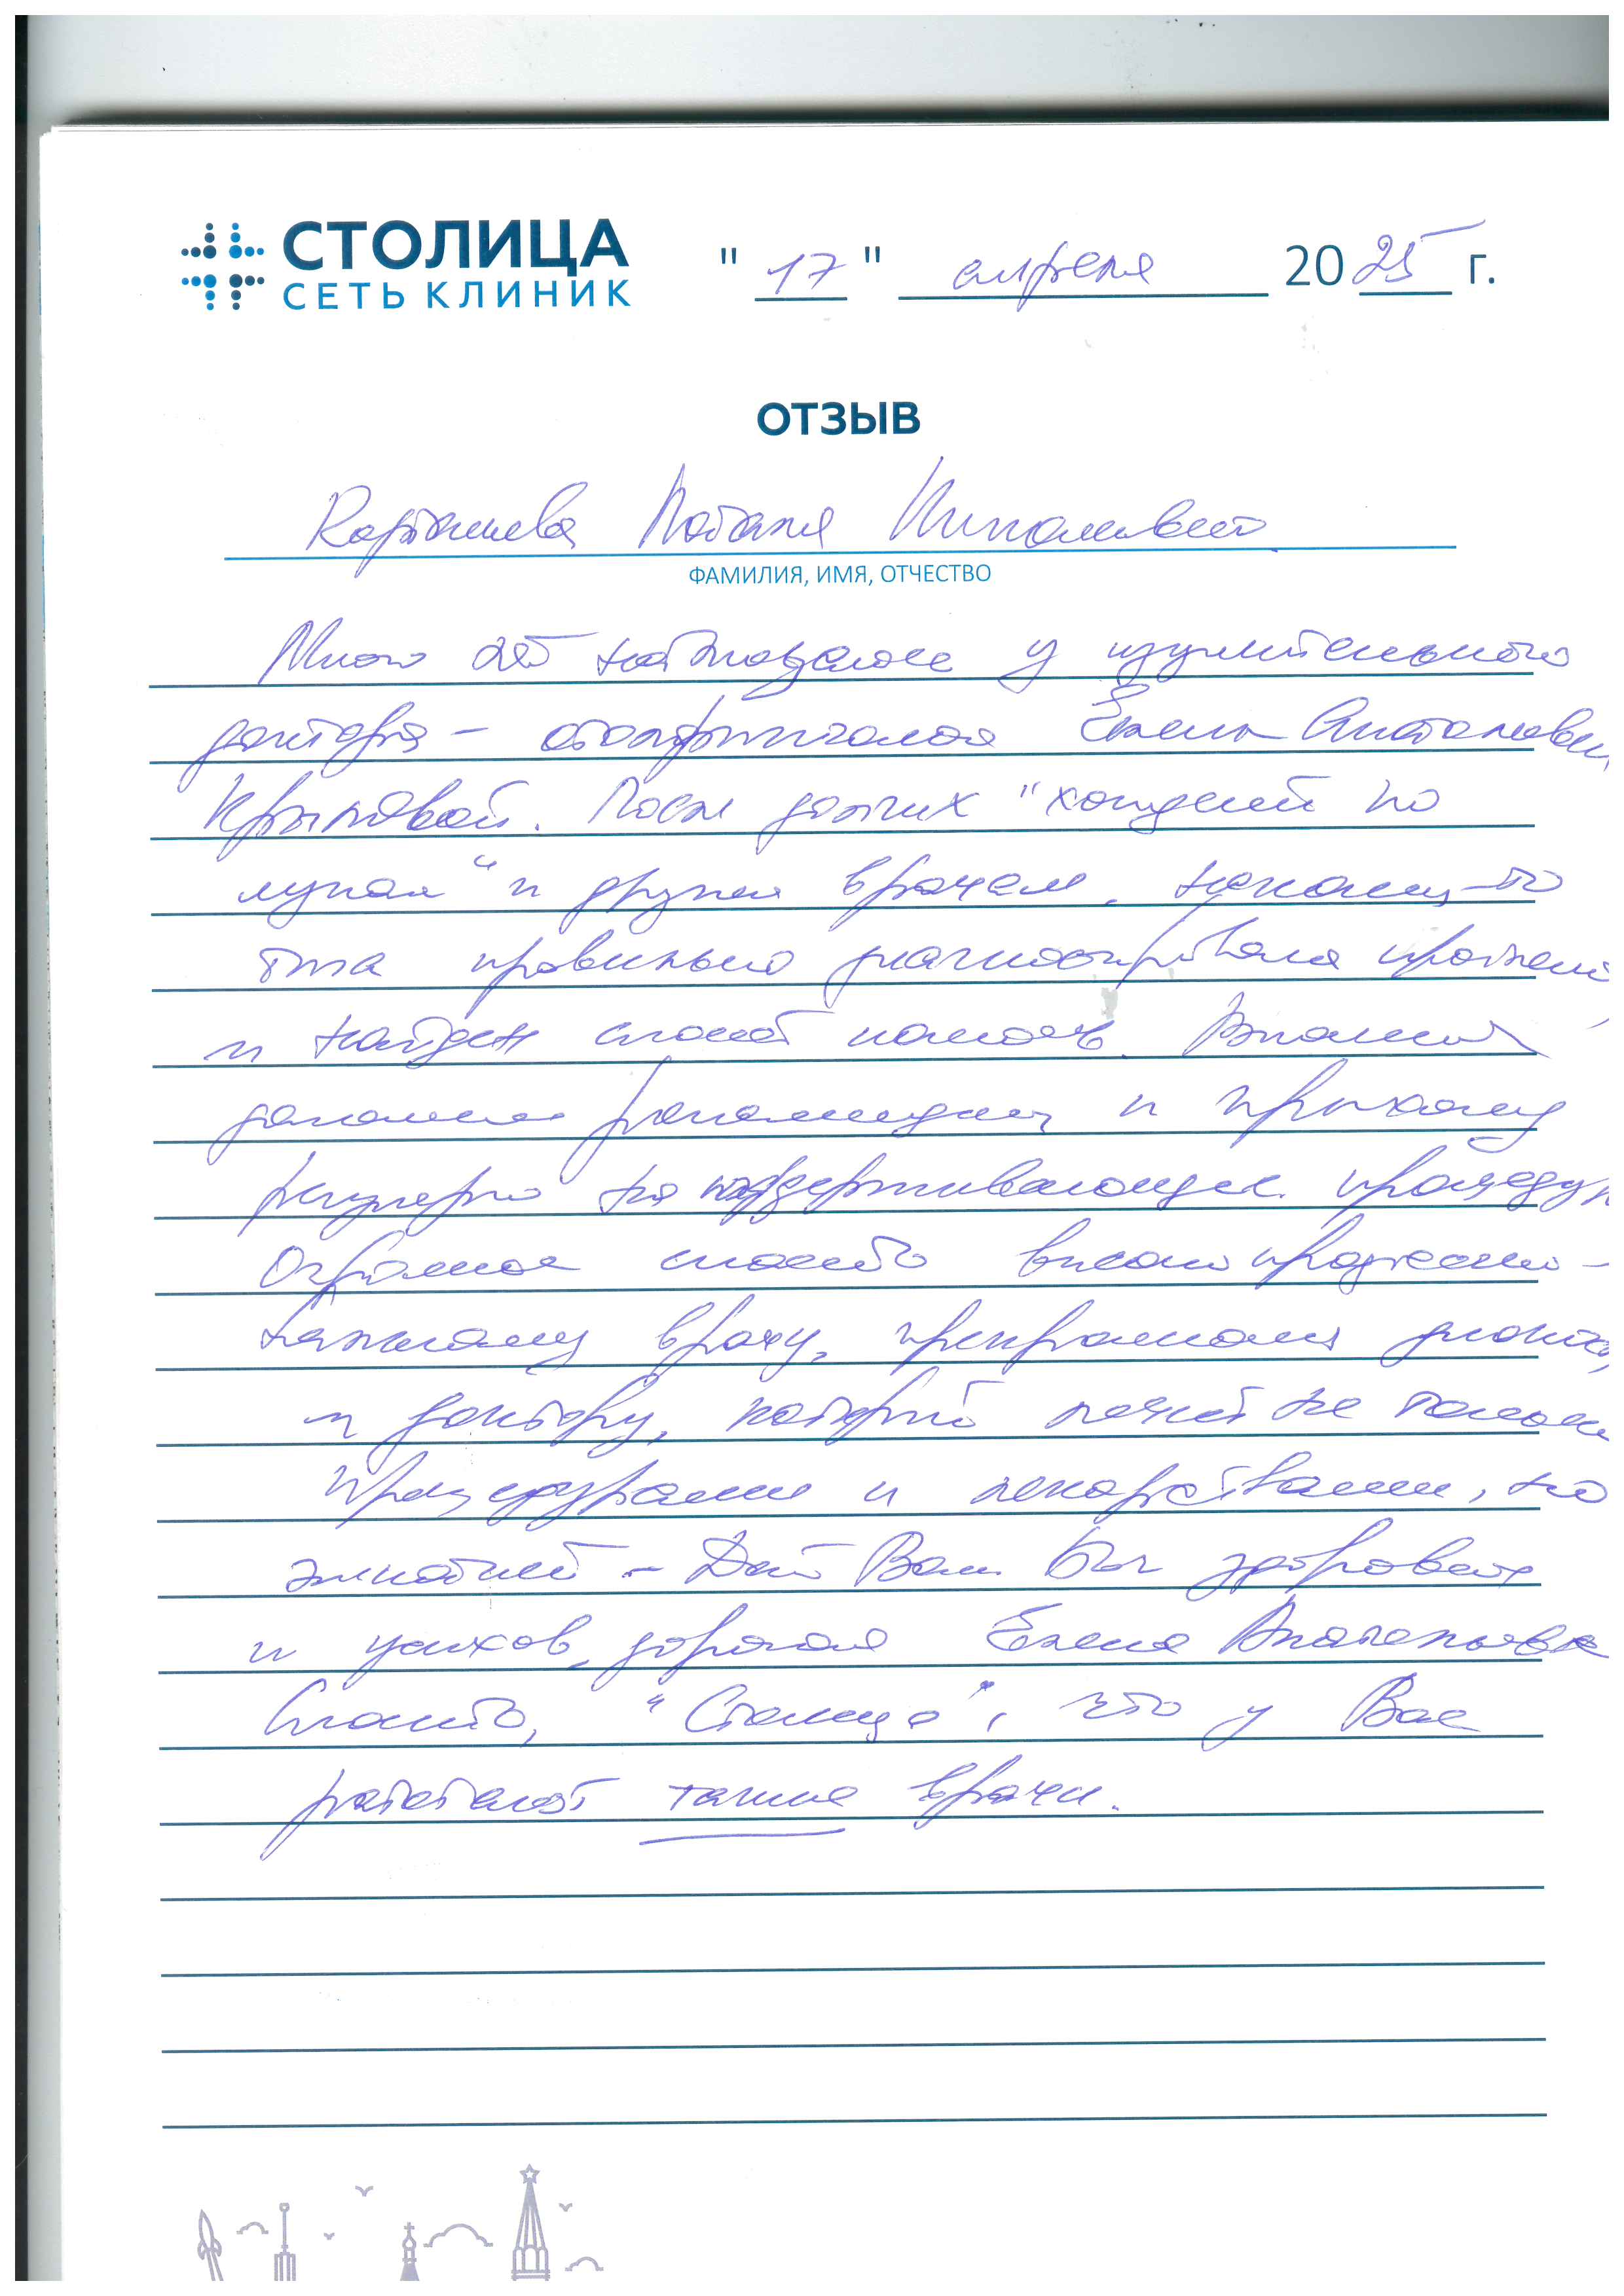 СТОЛИЦА
СЕТЬ КЛИНИК
" 17 " апреля 2025 г.
ОТЗЫВ
Карташева Наталья Николаевна
ФАМИЛИЯ, ИМЯ, ОТЧЕСТВО
Много лет наблюдаюсь у изумительного
доктора – отоларинголога Елены
Крыловой. После долгих "хождений по
мукам" и другим врачам, наконец-то
была правильно диагностирована проблема
и найден способ помочь. Выполняю
домашние рекомендации и прихожу
регулярно на поддерживающие процедуры
Огромное спасибо высокопрофессио-
нальному врачу, прекрасному
и доктору, который лечит не только
процедурами и лекарствами, но
эмпатией – Дай Вам Бог здоровья
и успехов, дорогая Елена
Спасибо, "Столица", что у Вас
работают такие врачи.